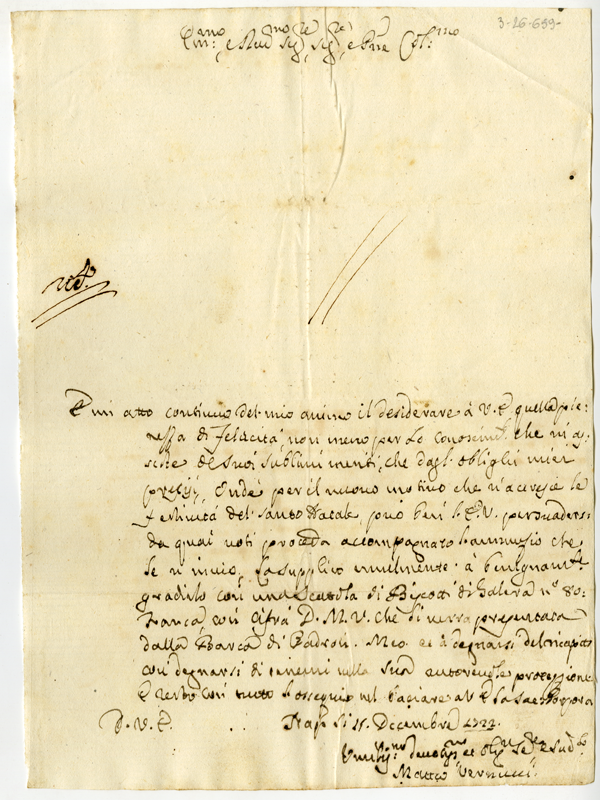 3-26-699-
Em:mo e Rev:mo Sig:re, Sig:re, e Pne Col:mo
È un atto continuo del mio animo il desiderare à V. E. quella pie:
nezza di felicità, non meno per lo conoscim:to che m'as:
siste de suoi sublimi meriti, che dagl'oblighi miei
precisi, Onde per il nuovo motivo che m'accresce le
festività del Santo Natale, può ben l'E. V. persuaders:
da quai voti proceda accompagnato l'annunzio che
le n'invio, la supplico umilmente a benignam:te
gradirlo con una Scatola di Biscotti di Galera n.º 80:
franca, con cifra D. M. V. che li verrà presentata
dalla Barca di Padron Meo. et à degnarsi del ricapito
con degnarsi di tenermi nella sua autorevole protezzione
E resto con tutto l'ossequio nel baciare a V. E. la Sacra Porpora
D. V. E. Nap: li 15. Decembre 1723.
Umiliss:mo devotiss:mo et oblig:mo
Matteo Vernucci